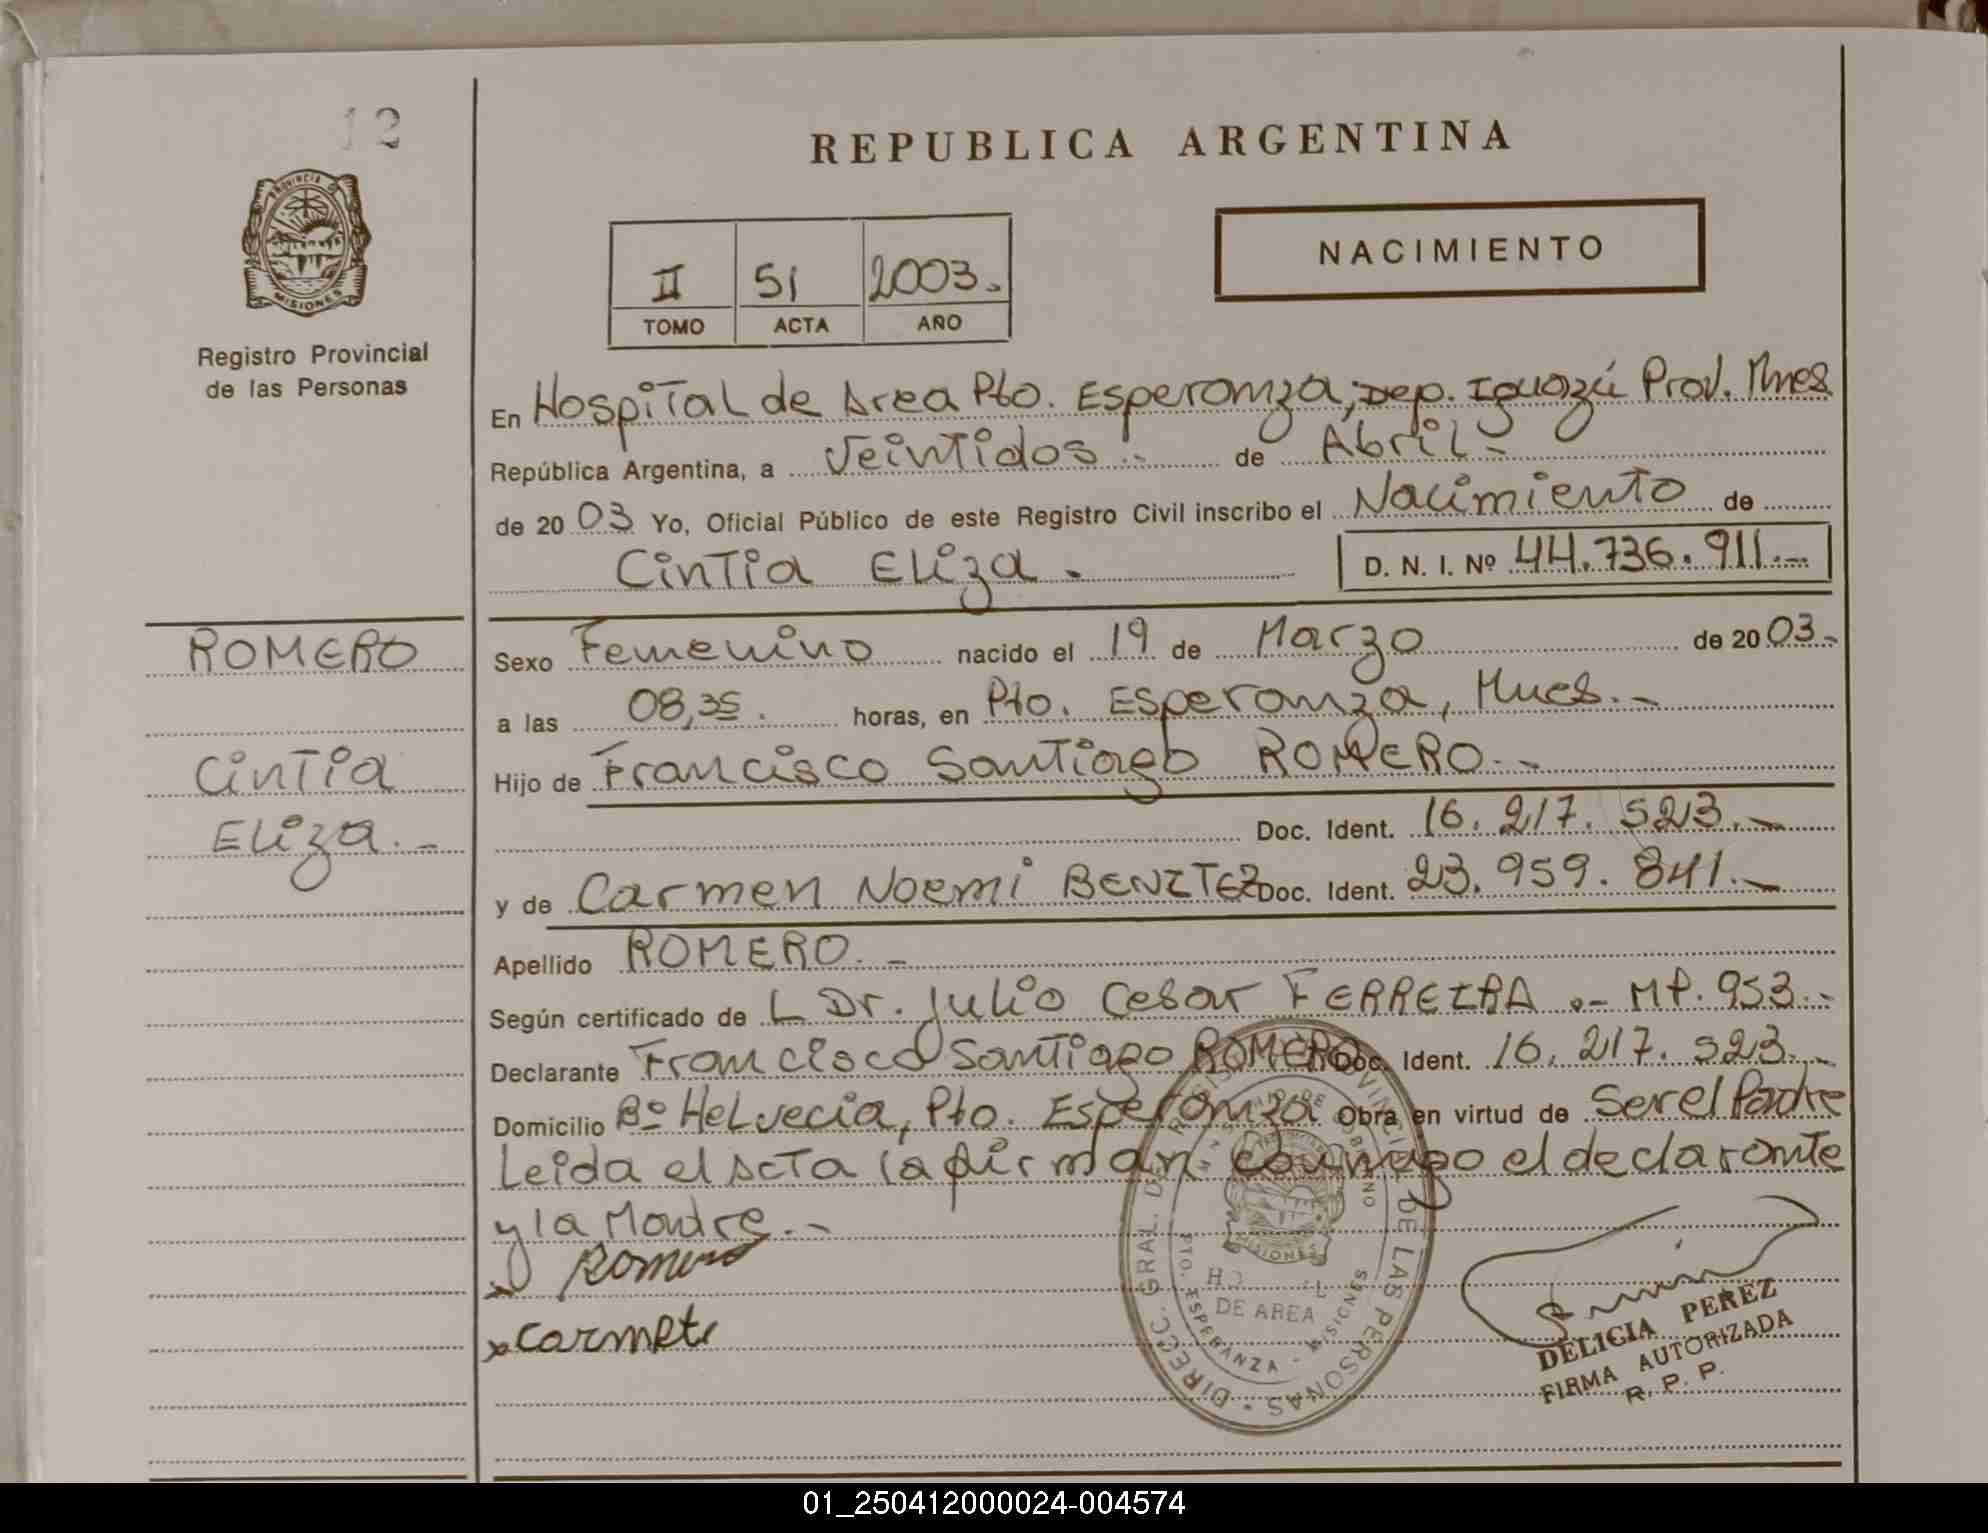 12
REPUBLICA ARGENTINA
PROVINCIA DE
MISIONES
Registro Provincial
de las Personas
II 51 2003.
TOMO ACTA AÑO
NACIMIENTO
En Hospital de Area Pto. Esperanza, Dep. Iguazú Prov. Mnes
República Argentina, a Veintidos.- de Abril-
de 2003 Yo, Oficial Público de este Registro Civil inscribo el Nacimiento de
Cintia Eliza. D. N. I. Nº 44.736.911.-
ROMERO
Cintia
Eliza.-
Sexo Femenino nacido el 19 de Marzo de 2003.-
a las 08,35. horas, en Pto. Esperanza, Mnes.-
Hijo de Francisco Santiago ROMERO.-
Doc. Ident. 16.217.523.-
y de Carmen Noemi BENITEZ Doc. Ident. 23.959.841.-
Apellido ROMERO.-
Según certificado de L Dr. Julio Cesar FERREIRA.- MP.953.-
Declarante Francisco Santiago ROMERO Doc. Ident. 16.217.523.-
Domicilio Bº Helvecia, Pto. Esperanza Obra en virtud de Ser el Padre
Leida el Acta la firman conmigo el declarante
y la Madre.-
x Romero
x Carmen
DIRECC. GRAL. DEL REGISTRO PROVINCIAL DE LAS PERSONAS
PTO. ESPERANZA - MISIONES
MISIONES
DE AREA
DELICIA PEREZ
FIRMA AUTORIZADA
R. P. P.
01_250412000024-004574